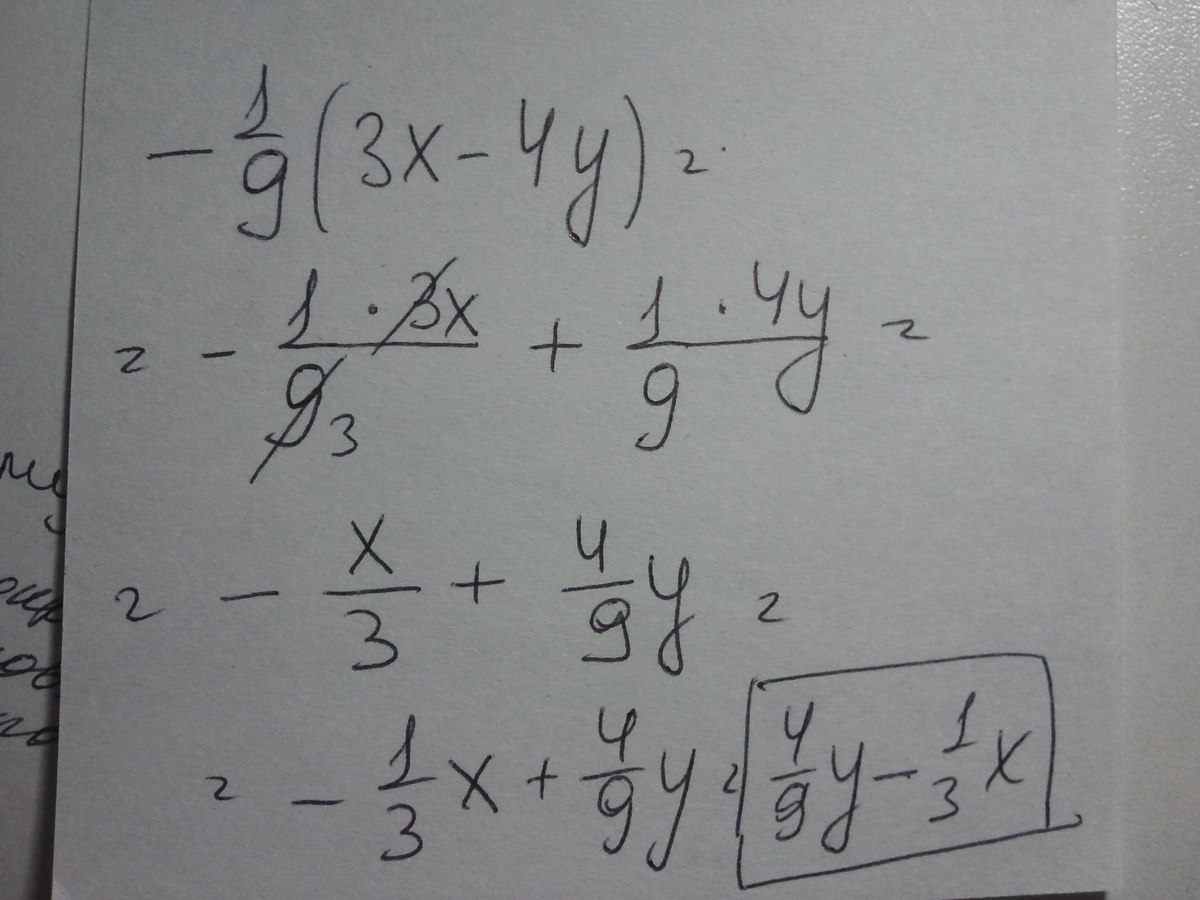 - 1/9 (3x - 4y) =
= - 1 · 3x / 9 3 + 1 · 4y / 9 =
= - x/3 + 4/9 y =
= - 1/3 x + 4/9 y = 4/9 y - 1/3 x